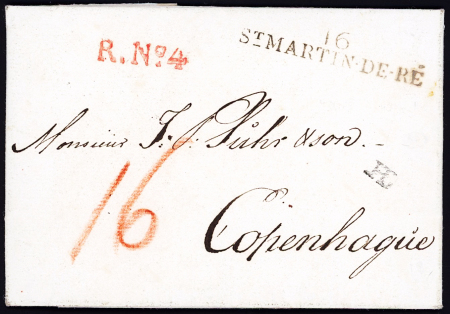 R. Nº 4
16
ST MARTIN-DE-RÉ
Monsieur J. P. Suhr & son.
16
Copenhague